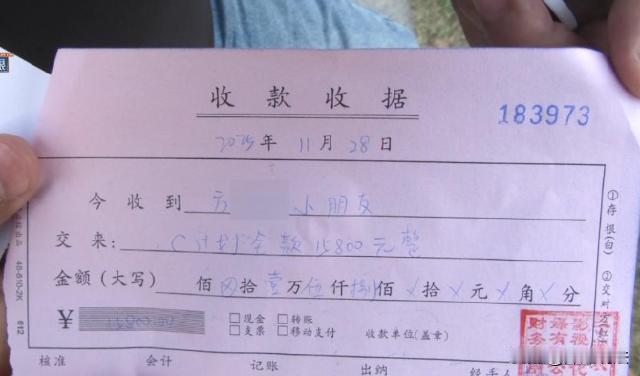 收款收据
183973
2025年 11月 28日
今收到 方 小朋友
交来： C计划全款15800元整
金额（大写） 佰 ⊗拾 壹万 伍仟 捌佰 ×拾 ×元 ×角 ×分
¥ 15800.00 □现金 □转账
□支票 □移动支付 收款单位（盖章）
核准 会计 记账 出纳 经手人
①存根（白）
②交对方
48-810-2K
612